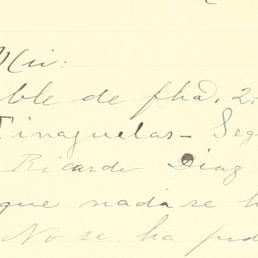 ble de fha, 2.
Tinaguelas - Seg
Ricardo Diaz
que nada se h
No se ha pud